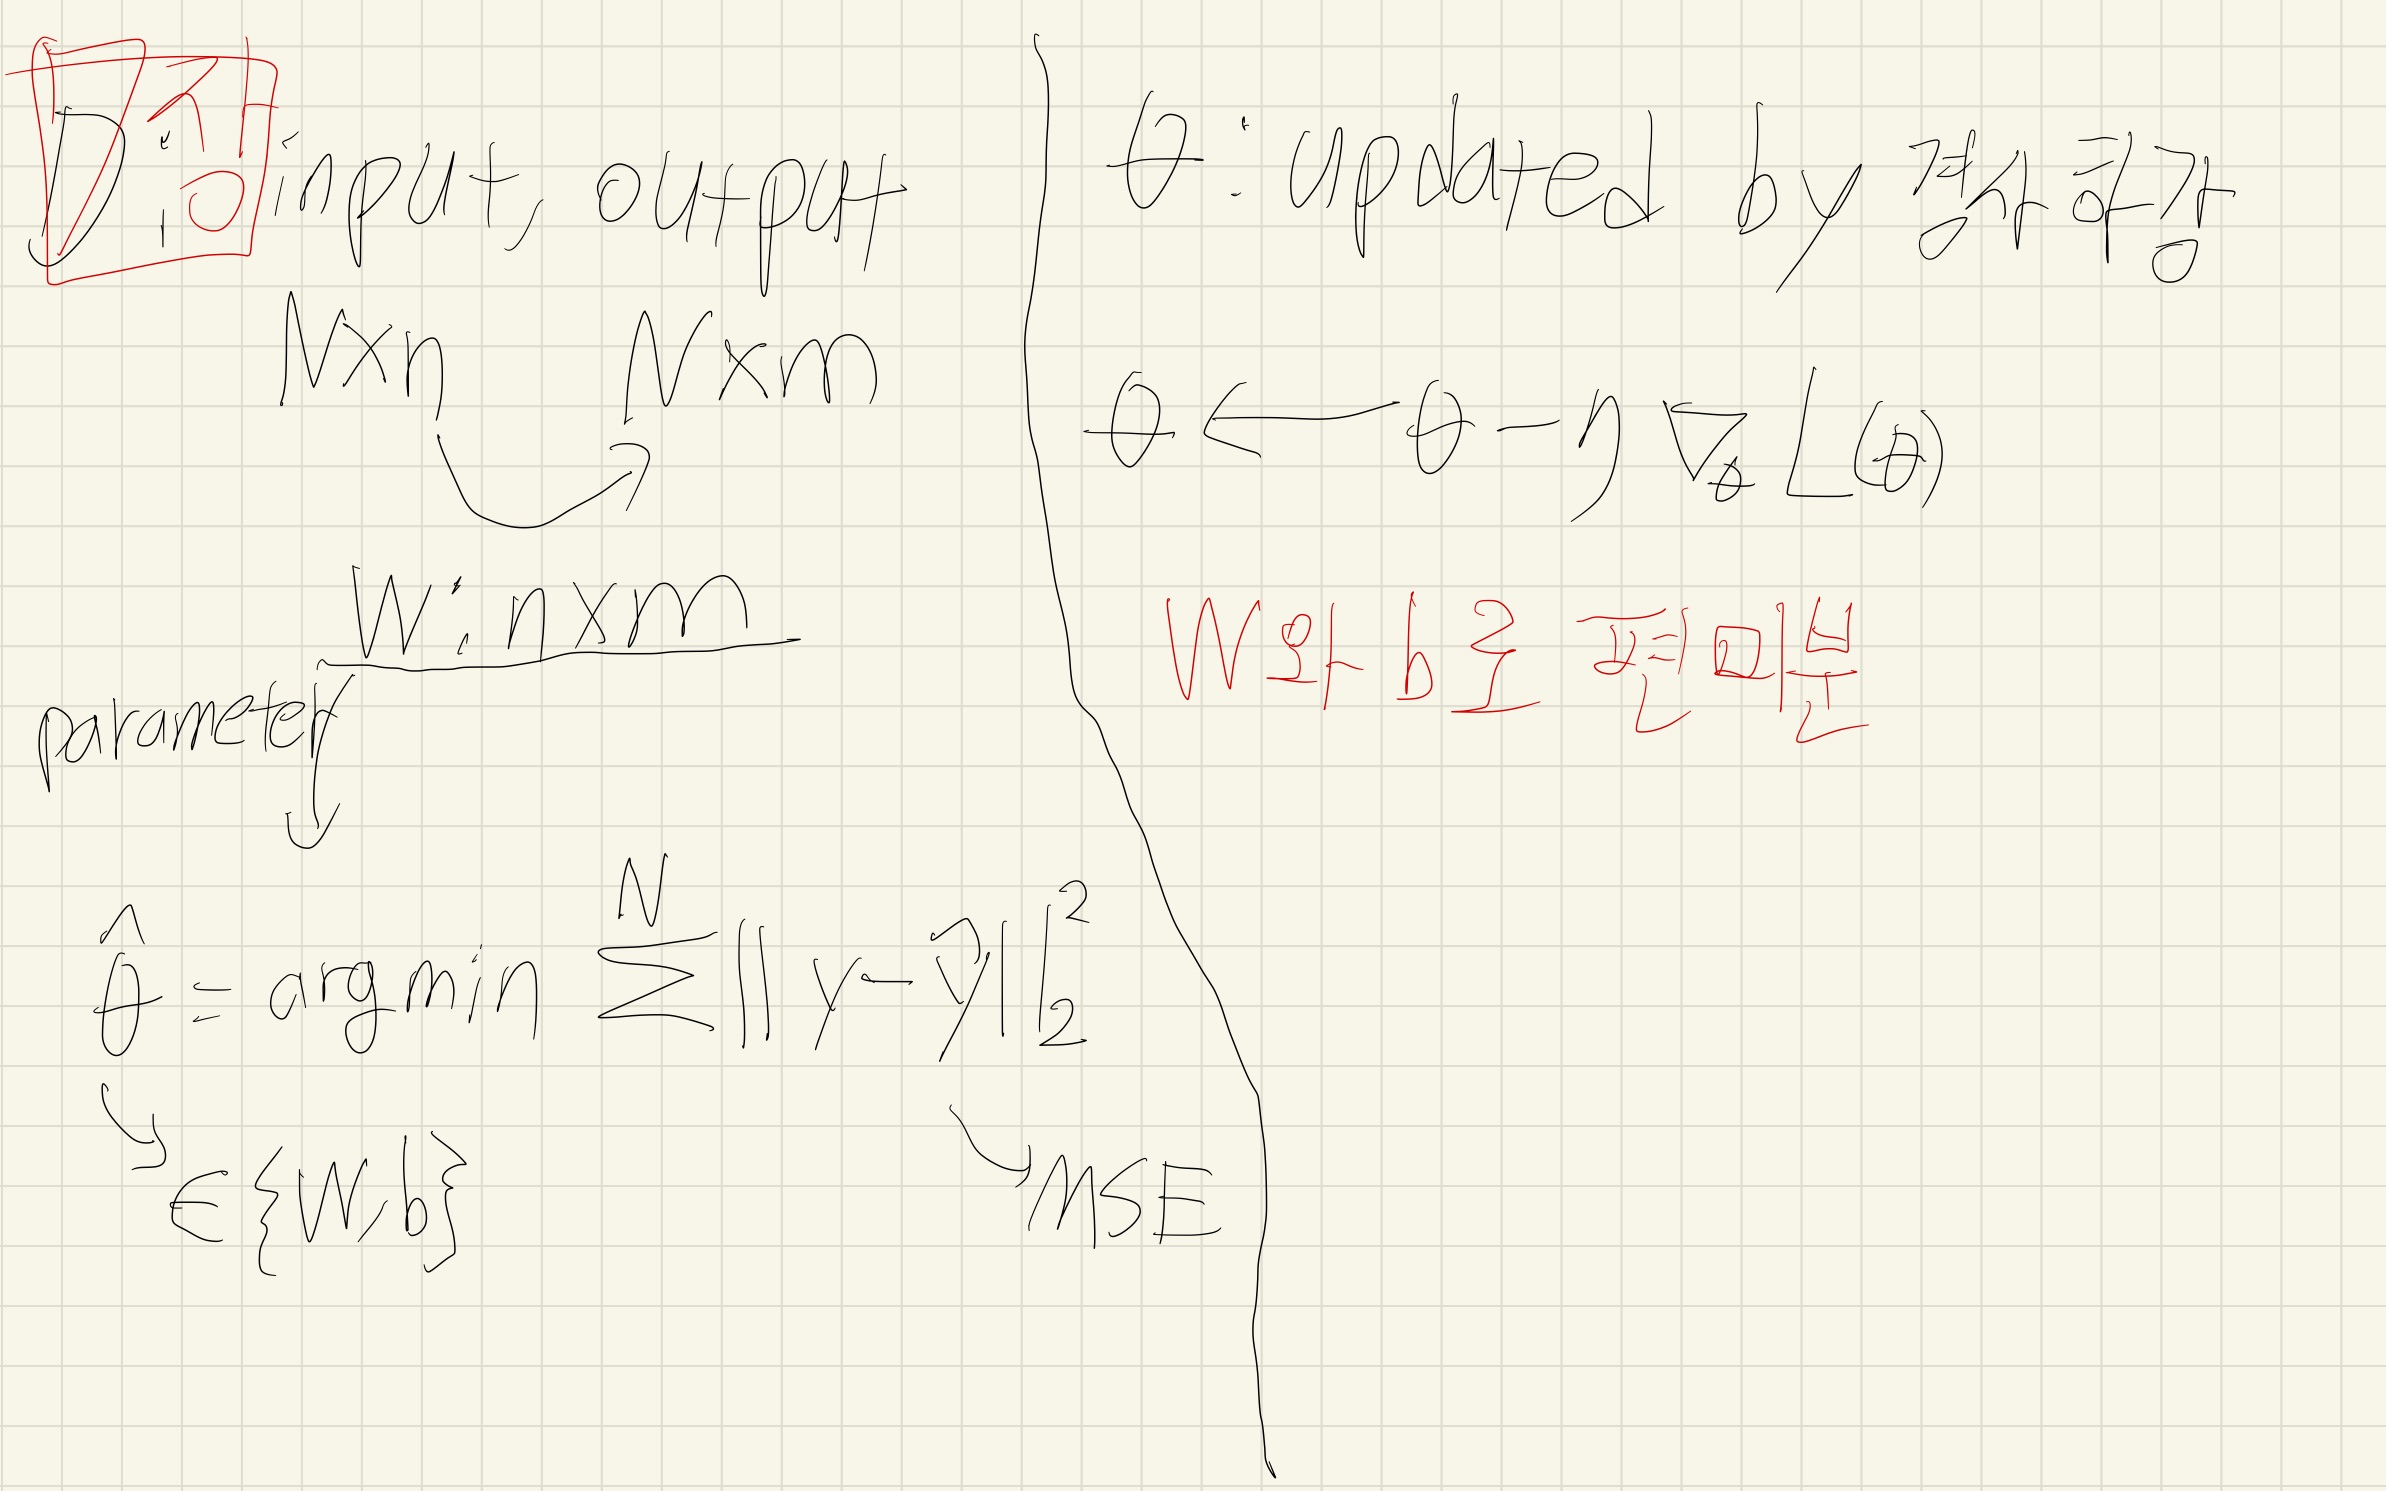 D: input, output
N×n N×m
W: n×m
parameter
θ̂ = argmin Σ^N ||y-ŷ||₂²
∈ {W, b}
MSE
θ: updated by 경사 하강
θ ← θ - η ∇_θ L(θ)
W와 b로 편미분